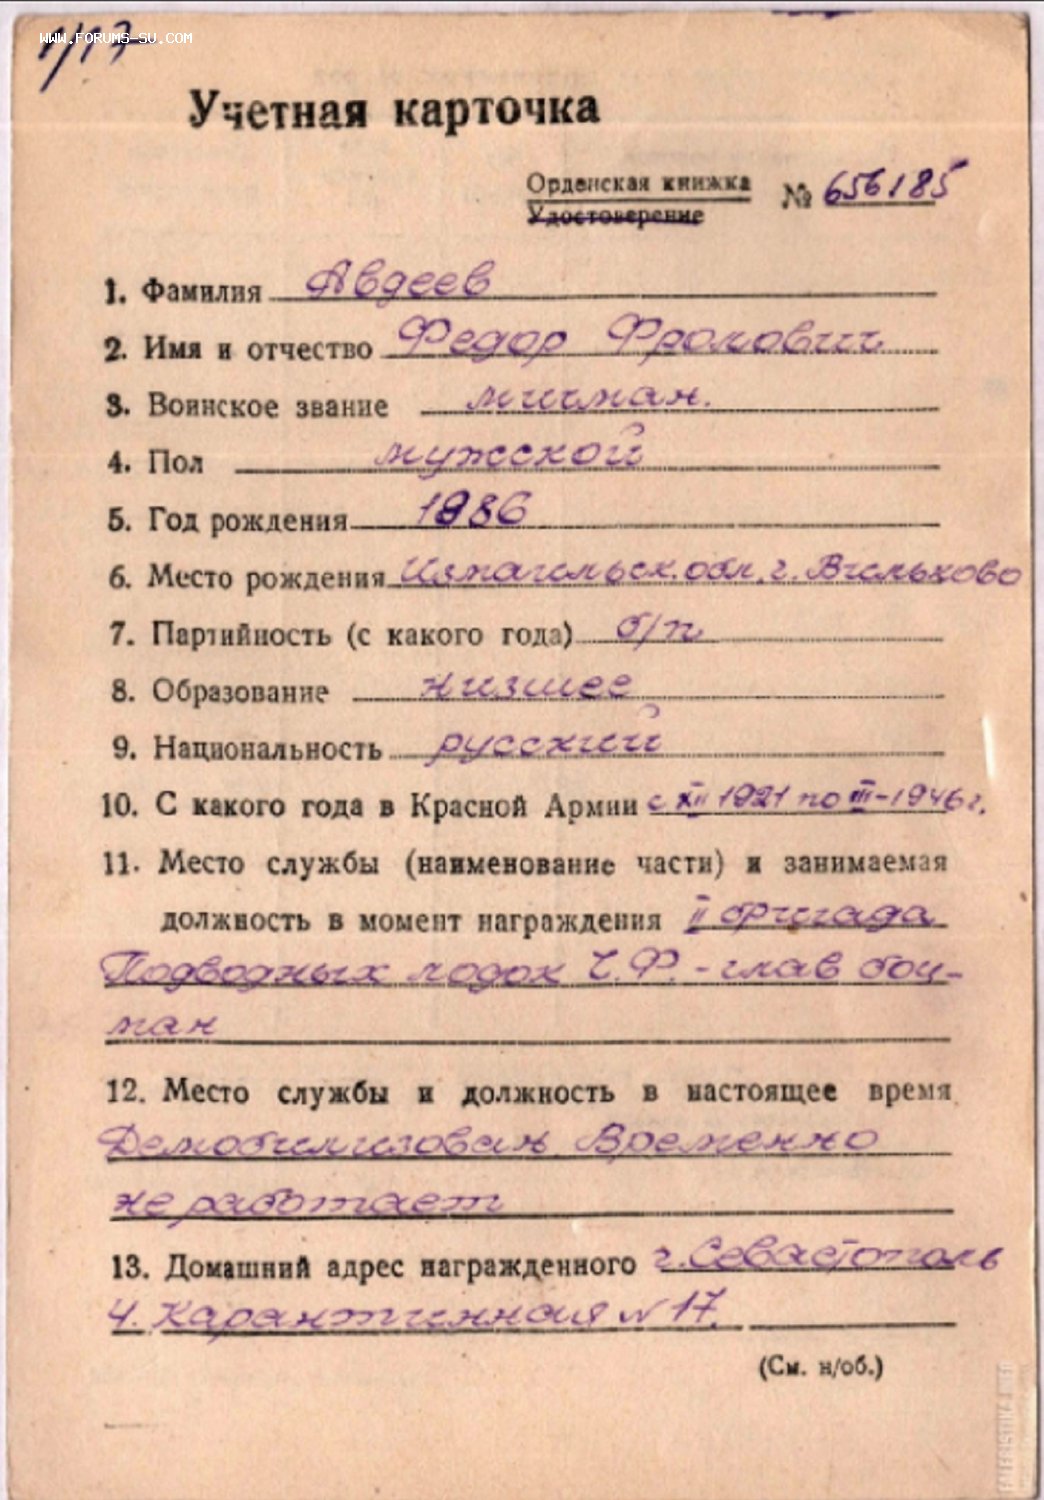 WWW.FORUMS-SU.COM
1/17
Учетная карточка
Орденская книжка
Удостоверение № 656185
1. Фамилия Авдеев
2. Имя и отчество Федор Фролович
3. Воинское звание мичман.
4. Пол мужской
5. Год рождения 1886
6. Место рождения Измаильск. обл. г. Вильково
7. Партийность (с какого года) б/п
8. Образование низшее
9. Национальность русский
10. С какого года в Красной Армии с XII 1921 по III-1946 г.
11. Место службы (наименование части) и занимаемая
должность в момент награждения II бригада
Подводных лодок Ч.Ф. - глав боц-
ман
12. Место службы и должность в настоящее время
Демобилизован. Временно
не работает
13. Домашний адрес награжденного г. Севастополь
Ч. Карантинная N 17.
(См. н/об.)